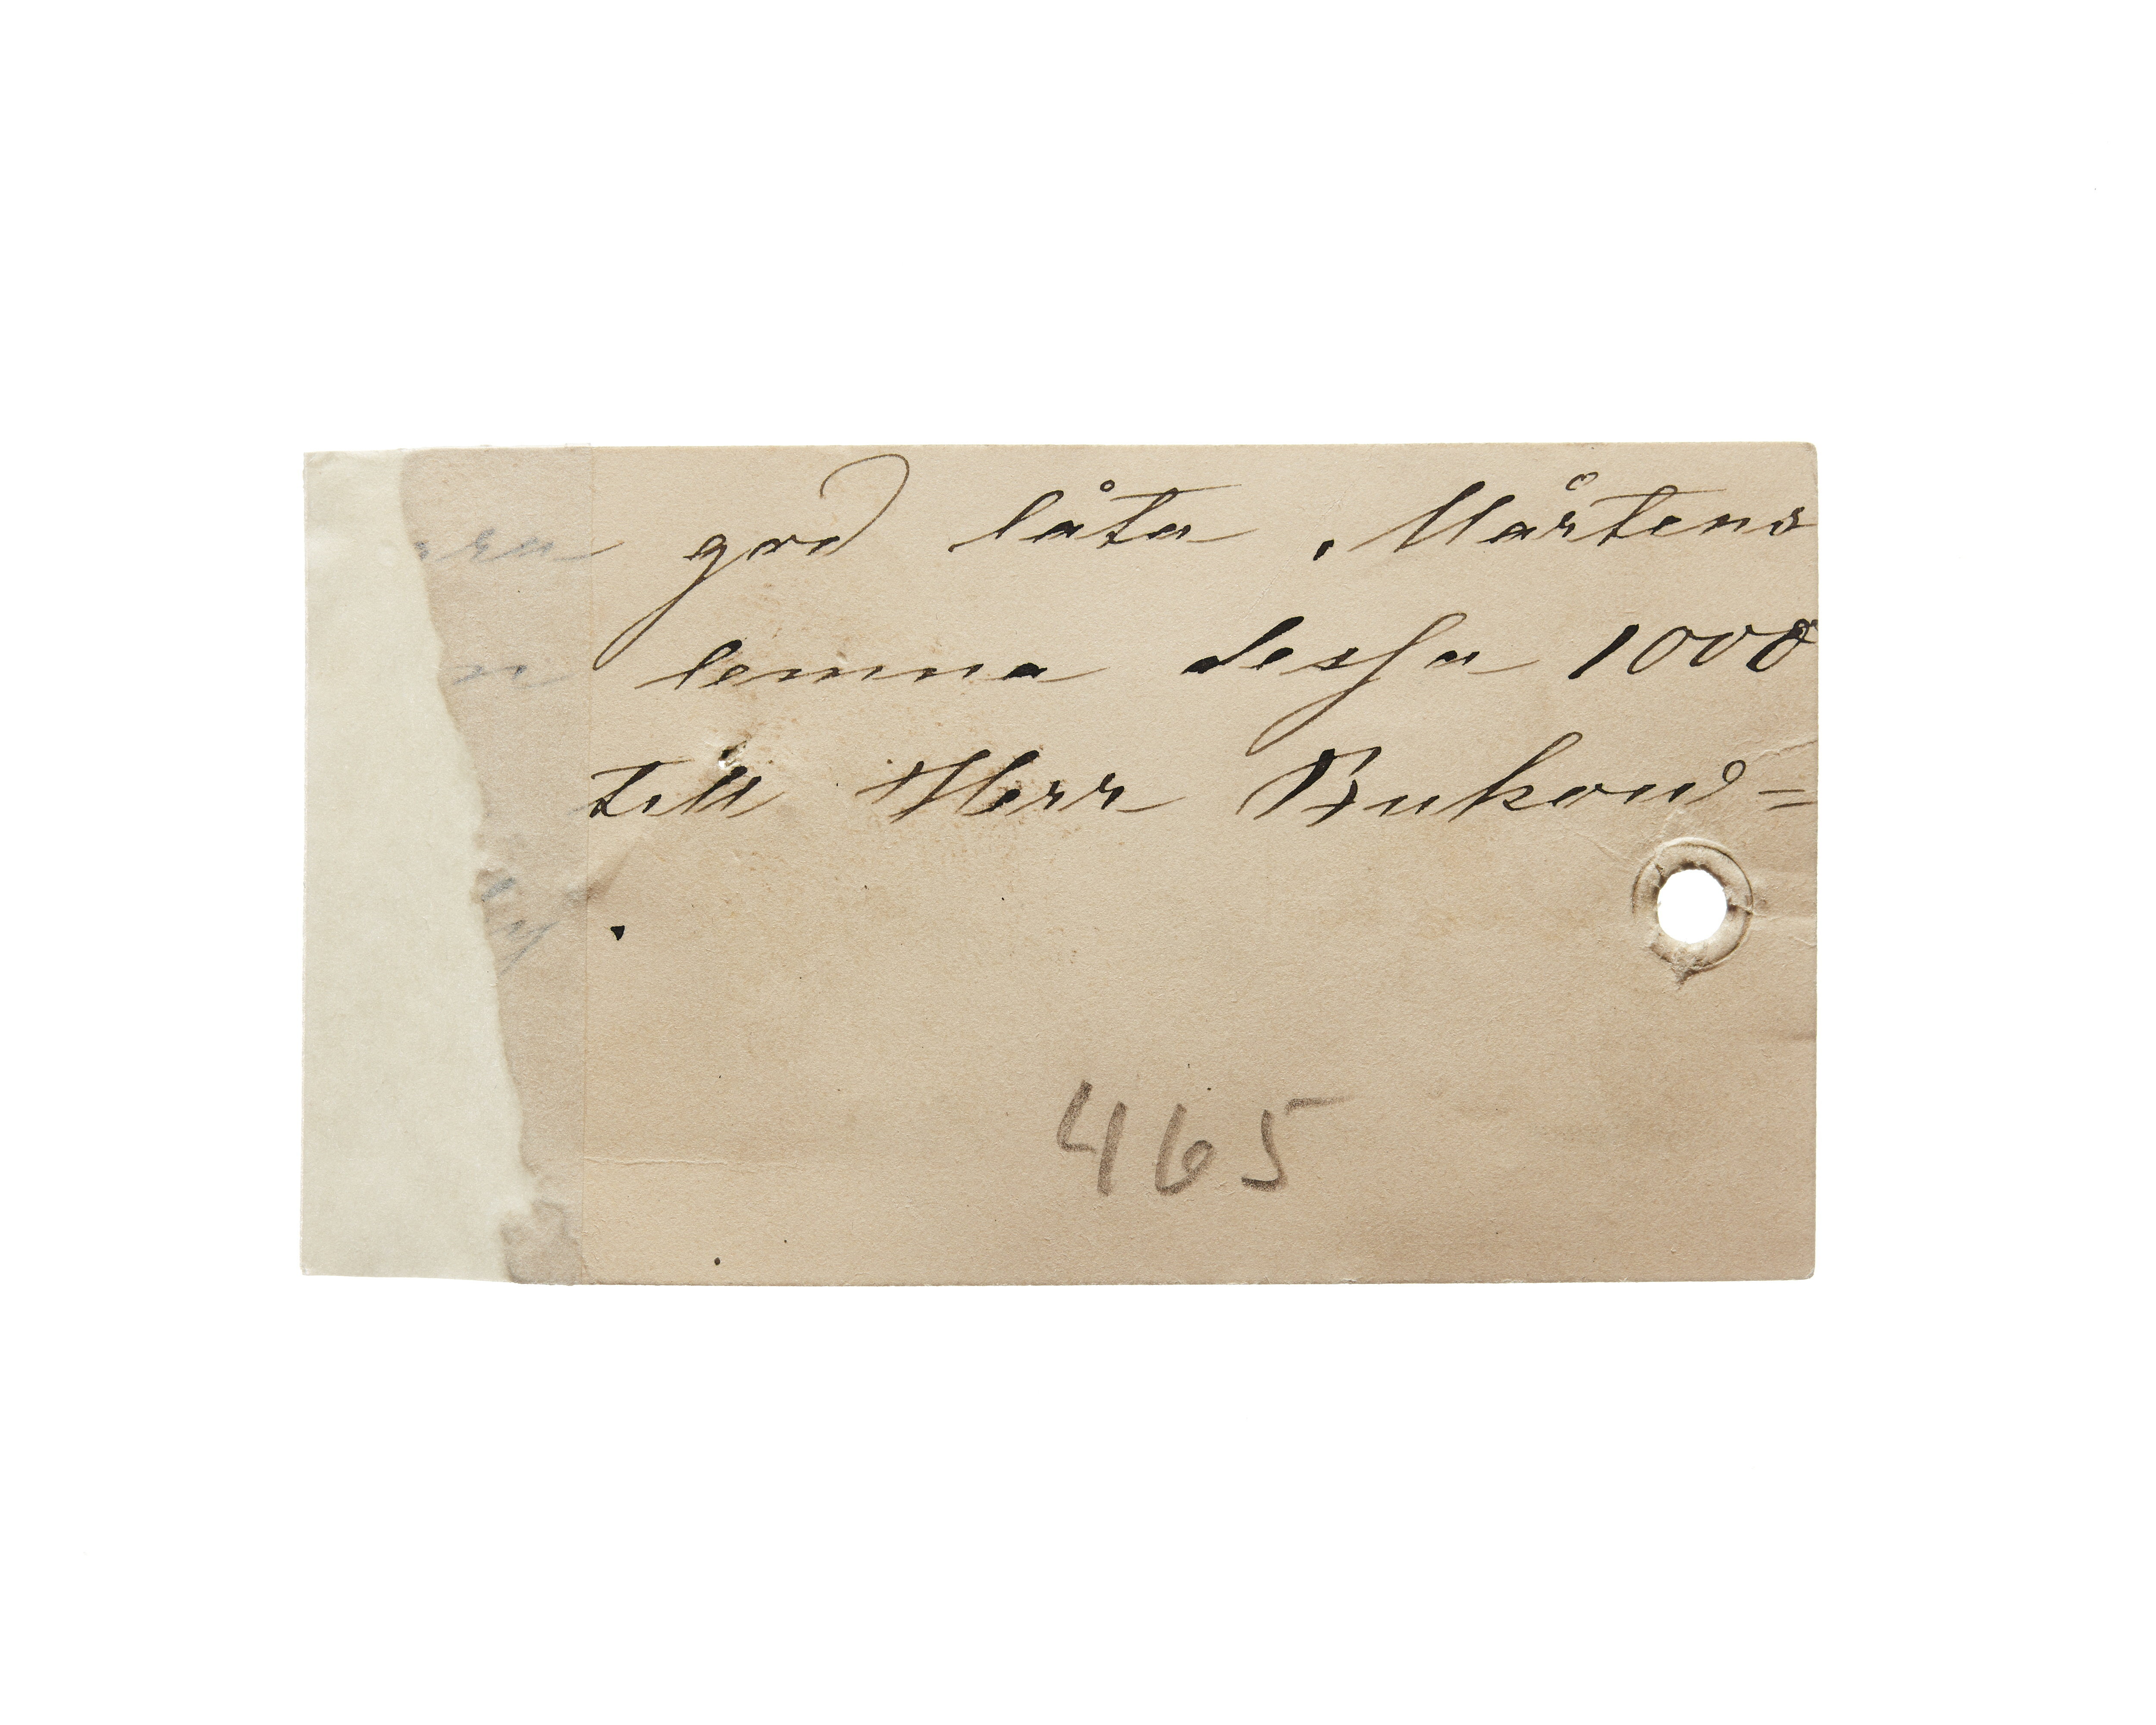 god låta Mårtens
lemna dessa 1000
till Herr Bukow=
465